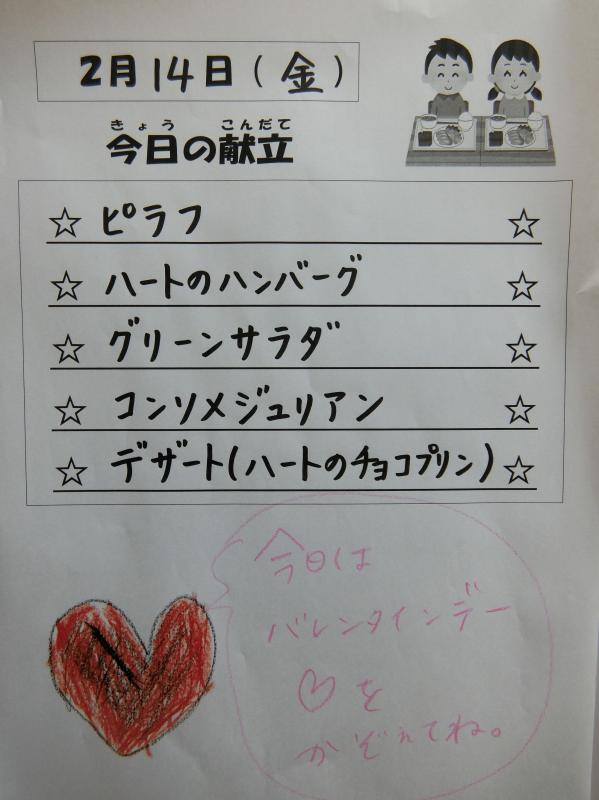 2月14日(金)
きょう こんだて
今日の献立
☆ ピラフ ☆
☆ ハートのハンバーグ ☆
☆ グリーンサラダ ☆
☆ コンソメジュリアン ☆
☆ デザート(ハートのチョコプリン) ☆
今日は
バレンタインデー
♡を
かぞえてね。